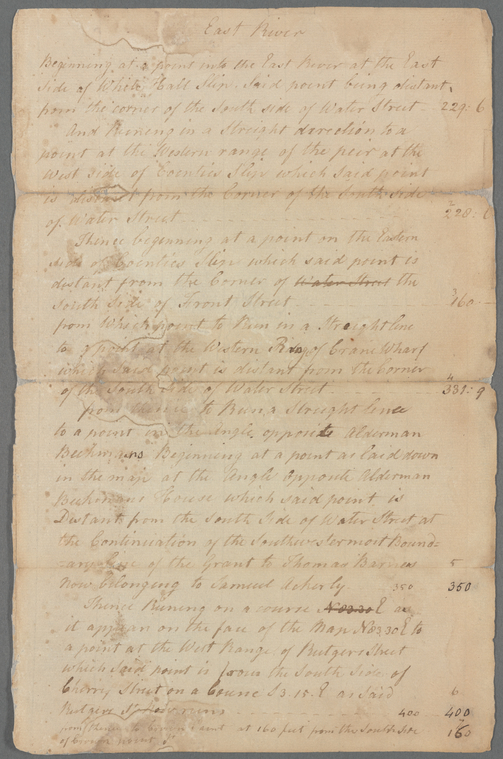 East River
Beginning at a point into the East River at the East
Side of White Hall Slip Said point being distant
from the corner of the South side of Water Street 229:6
And Runing in a Streight direction to a
point at the Western range of the peir at the
West Side of Coenties Slip which said point
is distant from the Corner of the South side
of Water Street 228:6
Thence beginning at a point on the Eastern
Side of Coenties Slip which said point is
distant from the Corner of Water Street the
South Side of Front Street 160
from which point to Run in a Streight line
to a point at the Western Rang of Crane Wharf
which said point is distant from the Corner
of the South Side of Water Street 4 331:9
from thence to Run a Streight line
to a point in the angle opposite Alderman
Beekmans Beginning at a point as laid down
in the map at the Angle opposite Alderman
Beekmans House which said point is
Distant from the South Side of Water Street at
the Continuation of the Southwestermost Bound=
ary line of the Grant to Thomas 5
now belonging to Samuel 350 350
Thence Runing on a course N83.30E as
it appears on the face of the Map N83.30E to
a point at the West Range of Rutgers Street
which said point is from the South Side of
Cherry Street on a Course S3.15.E as Said 6
Rutgers Street runs 400 400
from thence to at 160 feet from the South Side 160
of